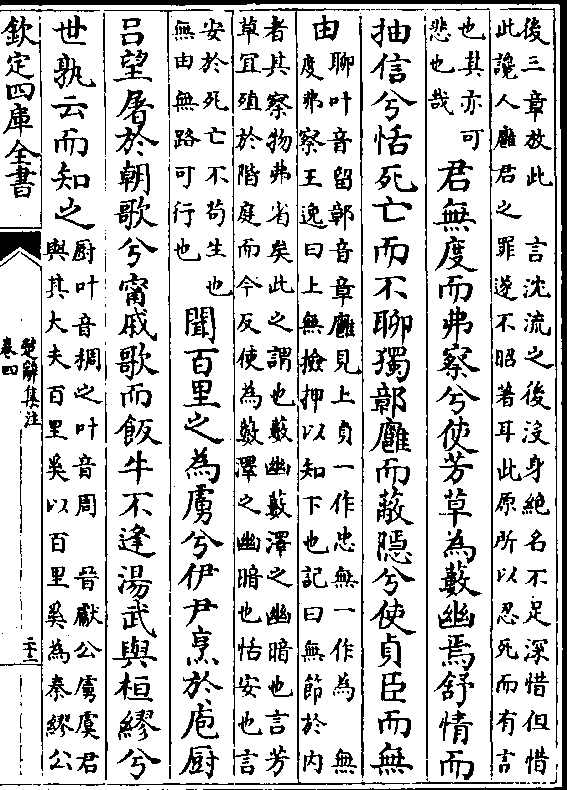 後三章放此　言沈流之後沒身絶名不足深惜但惜
此讒人廱君之罪遂不昭著耳此原所以忍死而有言
也其亦可
悲也哉
君無度而弗察兮使芳草為藪幽焉舒情而
抽信兮恬死亡而不聊獨鄣廱而蔽隱兮使貞臣而無
由
聊叶音留鄣音章廱見上貞一作忠無一作為　無
度弗察王逸曰上無撿押以知下也記曰無節於内
者其察物弗省矣此之謂也藪幽藪澤之幽暗也言芳
草宜殖於階庭而今反使為藪澤之幽暗也恬安也言
安於死亡不苟生也
無由無路可行也
聞百里之為虜兮伊尹烹於庖厨
吕望屠於朝歌兮甯戚歌而飯牛不逢湯武與桓繆兮
世孰云而知之
厨叶音稠之叶音周　晉獻公虜虞君
與其大夫百里奚以百里奚為秦繆公
欽定四庫全書
楚辭集注
卷四